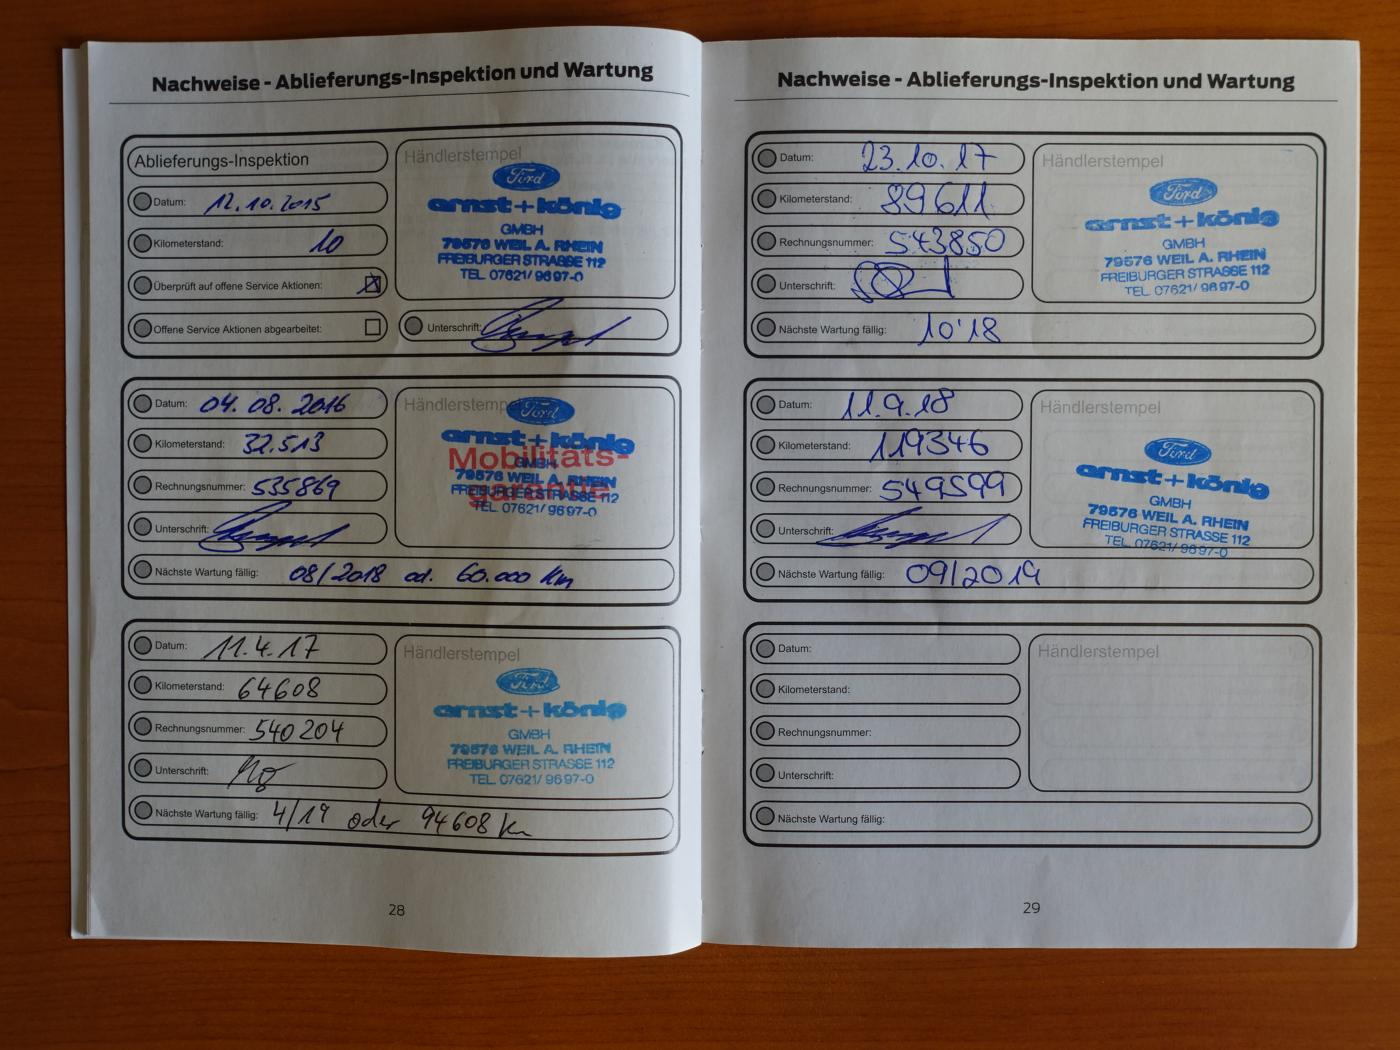 Nachweise - Ablieferungs-Inspektion und Wartung
Ablieferungs-Inspektion
Datum: 12.10.2015
Kilometerstand: 10
Überprüft auf offene Service Aktionen:
Offene Service Aktionen abgearbeitet:
Händlerstempel
Ford
arnst+könig
GMBH
79576 WEIL A. RHEIN
FREIBURGER STRASSE 112
TEL. 07621/9697-0
Unterschrift:
Datum: 04.08.2016
Kilometerstand: 32.513
Rechnungsnummer: 535869
Unterschrift:
Händlerstempel
Ford
arnst+könig
Mobilitäts-
GMBH
79576 WEIL A. RHEIN
garantie
FREIBURGER STRASSE 112
TEL. 07621/9697-0
Nächste Wartung fällig: 08/2018 od. 60.000 Km
Datum: 11.4.17
Kilometerstand: 64608
Rechnungsnummer: 540204
Unterschrift:
Händlerstempel
Ford
arnst+könig
GMBH
79576 WEIL A. RHEIN
FREIBURGER STRASSE 112
TEL. 07621/9697-0
Nächste Wartung fällig: 4/19 oder 94608 km
28
Nachweise - Ablieferungs-Inspektion und Wartung
Datum: 23.10.17
Kilometerstand: 89611
Rechnungsnummer: 543850
Unterschrift:
Händlerstempel
Ford
arnst+könig
GMBH
79576 WEIL A. RHEIN
FREIBURGER STRASSE 112
TEL. 07621/9697-0
Nächste Wartung fällig: 10'18
Datum: 11.9.18
Kilometerstand: 119346
Rechnungsnummer: 549599
Unterschrift:
Händlerstempel
Ford
arnst+könig
GMBH
79576 WEIL A. RHEIN
FREIBURGER STRASSE 112
TEL. 07621/9697-0
Nächste Wartung fällig: 09/2019
Datum:
Kilometerstand:
Rechnungsnummer:
Unterschrift:
Händlerstempel
Nächste Wartung fällig:
29